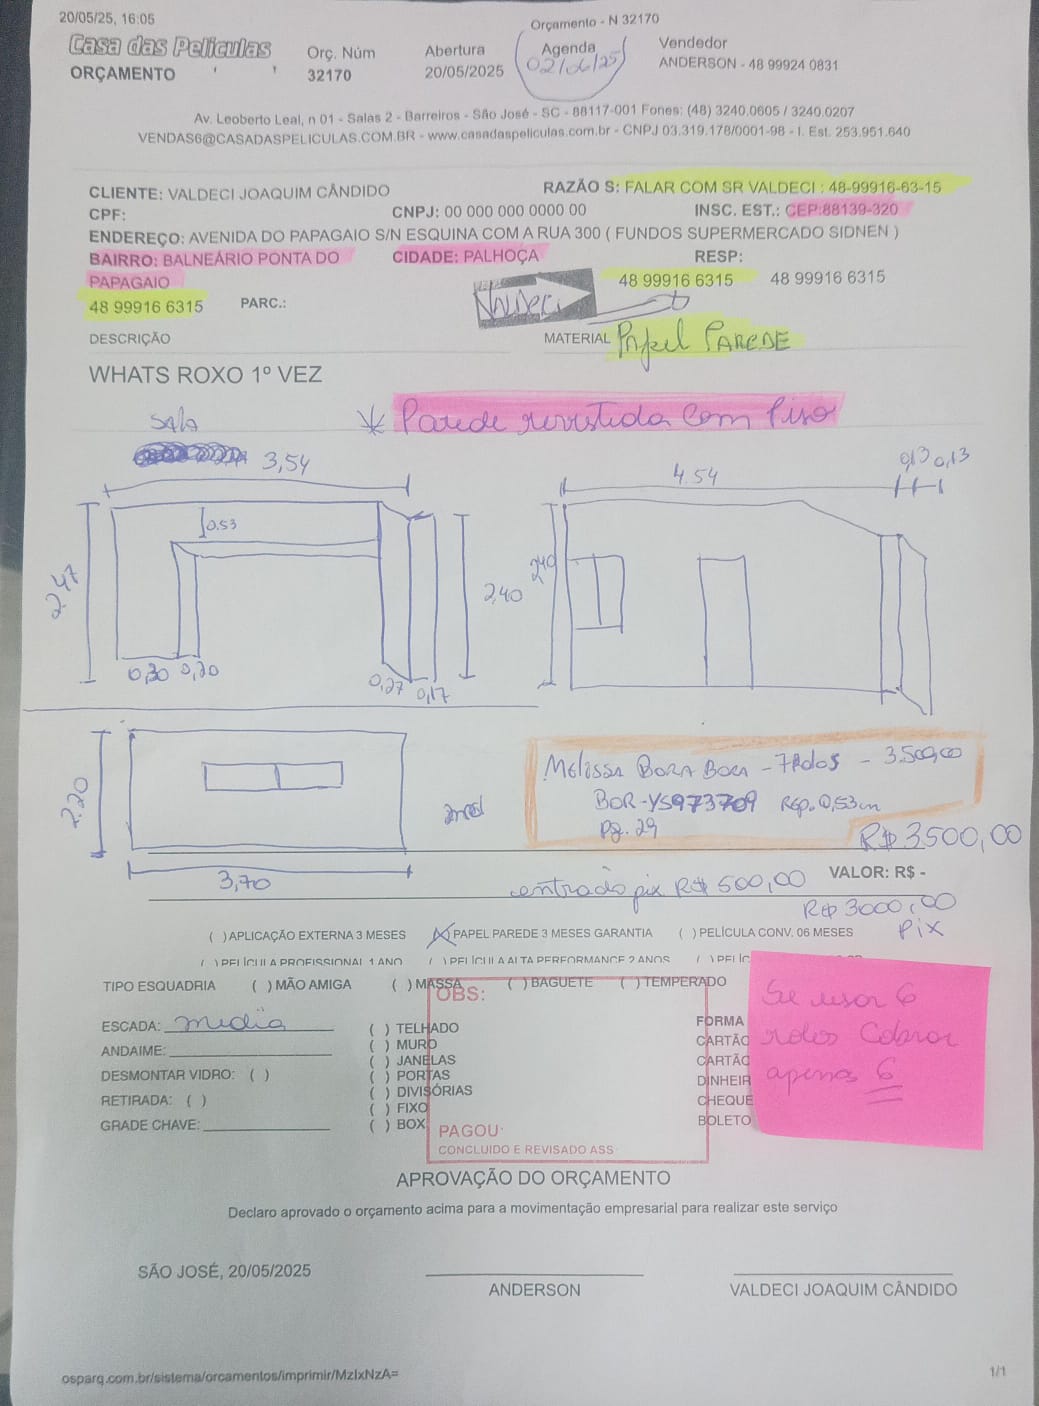 20/05/25, 16:05
Orçamento - N 32170
Casa das Películas
ORÇAMENTO
Orç. Núm
32170
Abertura
20/05/2025
Agenda
02/06/25
Vendedor
ANDERSON - 48 99924 0831
Av. Leoberto Leal, n 01 - Salas 2 - Barreiros - São José - SC - 88117-001 Fones: (48) 3240.0605 / 3240.0207
VENDAS6@CASADASPELICULAS.COM.BR - www.casadaspeliculas.com.br - CNPJ 03.319.178/0001-98 - I. Est. 253.951.640
CLIENTE: VALDECI JOAQUIM CÂNDIDO
RAZÃO S: FALAR COM SR VALDECI : 48-99916-63-15
CPF:
CNPJ: 00 000 000 0000 00
INSC. EST.: CEP:88139-320
ENDEREÇO: AVENIDA DO PAPAGAIO S/N ESQUINA COM A RUA 300 ( FUNDOS SUPERMERCADO SIDNEN )
BAIRRO: BALNEÁRIO PONTA DO PAPAGAIO
CIDADE: PALHOÇA
RESP:
48 99916 6315
PARC.:
Valdeci
48 99916 6315
48 99916 6315
DESCRIÇÃO
MATERIAL Papel PAREDE
WHATS ROXO 1º VEZ
Sala
* Parede revestida com Piso
3,54
4.54
0,13 0,13
0,53
2,47
2,40
2,40
0,30 0,20
0,27 0,17
2,20
3,70
Melissa BORA BORA - 7 Rolos - 3.500,00
BOR-YS973709 Rep. 0,53cm
Pg. 29
R$ 3500,00
VALOR: R$ -
entrada pix R$ 500,00
R$ 3000,00
Pix
( )APLICAÇÃO EXTERNA 3 MESES
(X)PAPEL PAREDE 3 MESES GARANTIA
( )PELÍCULA CONV. 06 MESES
( )PELÍCULA PROFISSIONAL 1 ANO
( )PELÍCULA ALTA PERFORMANCE 2 ANOS
( )PELÍC
TIPO ESQUADRIA
( )MÃO AMIGA
( )MASSA
( )BAGUETE
( )TEMPERADO
OBS:
ESCADA: media
ANDAIME:
DESMONTAR VIDRO: ( )
RETIRADA: ( )
GRADE CHAVE:
( ) TELHADO
( ) MURO
( ) JANELAS
( ) PORTAS
( ) DIVISÓRIAS
( ) FIXO
( ) BOX
PAGOU:
CONCLUIDO E REVISADO ASS
FORMA
CARTÃO
CARTÃO
DINHEIR
CHEQUE
BOLETO
Se usar 6
rolos Cobrar
apenas 6
APROVAÇÃO DO ORÇAMENTO
Declaro aprovado o orçamento acima para a movimentação empresarial para realizar este serviço
SÃO JOSÉ, 20/05/2025
ANDERSON
VALDECI JOAQUIM CÂNDIDO
osparq.com.br/sistema/orcamentos/imprimir/MzIxNzA=
1/1